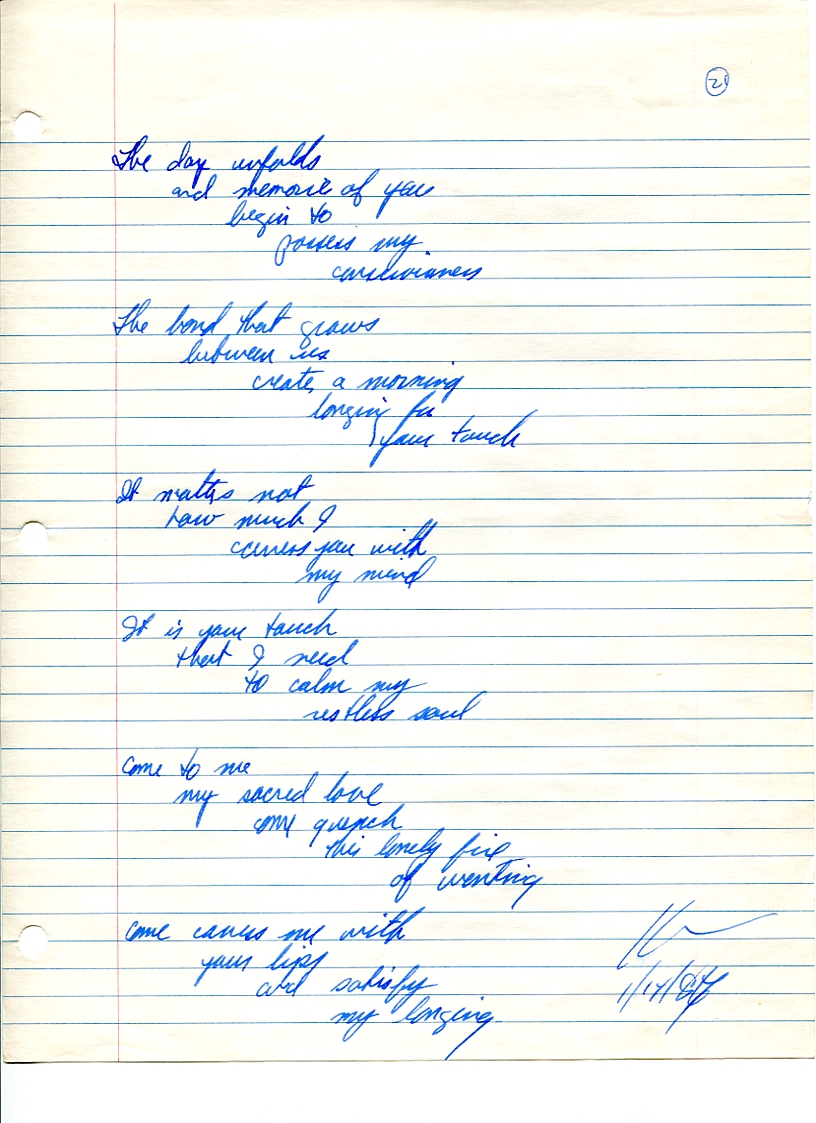 21
The day unfolds
and memories of you
begin to
possess my
consciousness
The bond that grows
between us
creates a morning
longing for
your touch
It matters not
how much I
caress you with
my mind
It is your touch
that I need
to calm my
restless soul
come to me
my sacred love
come quench
this lonely fire
of wanting
come caress me with
your lips
and satisfy
my longing
1/17/